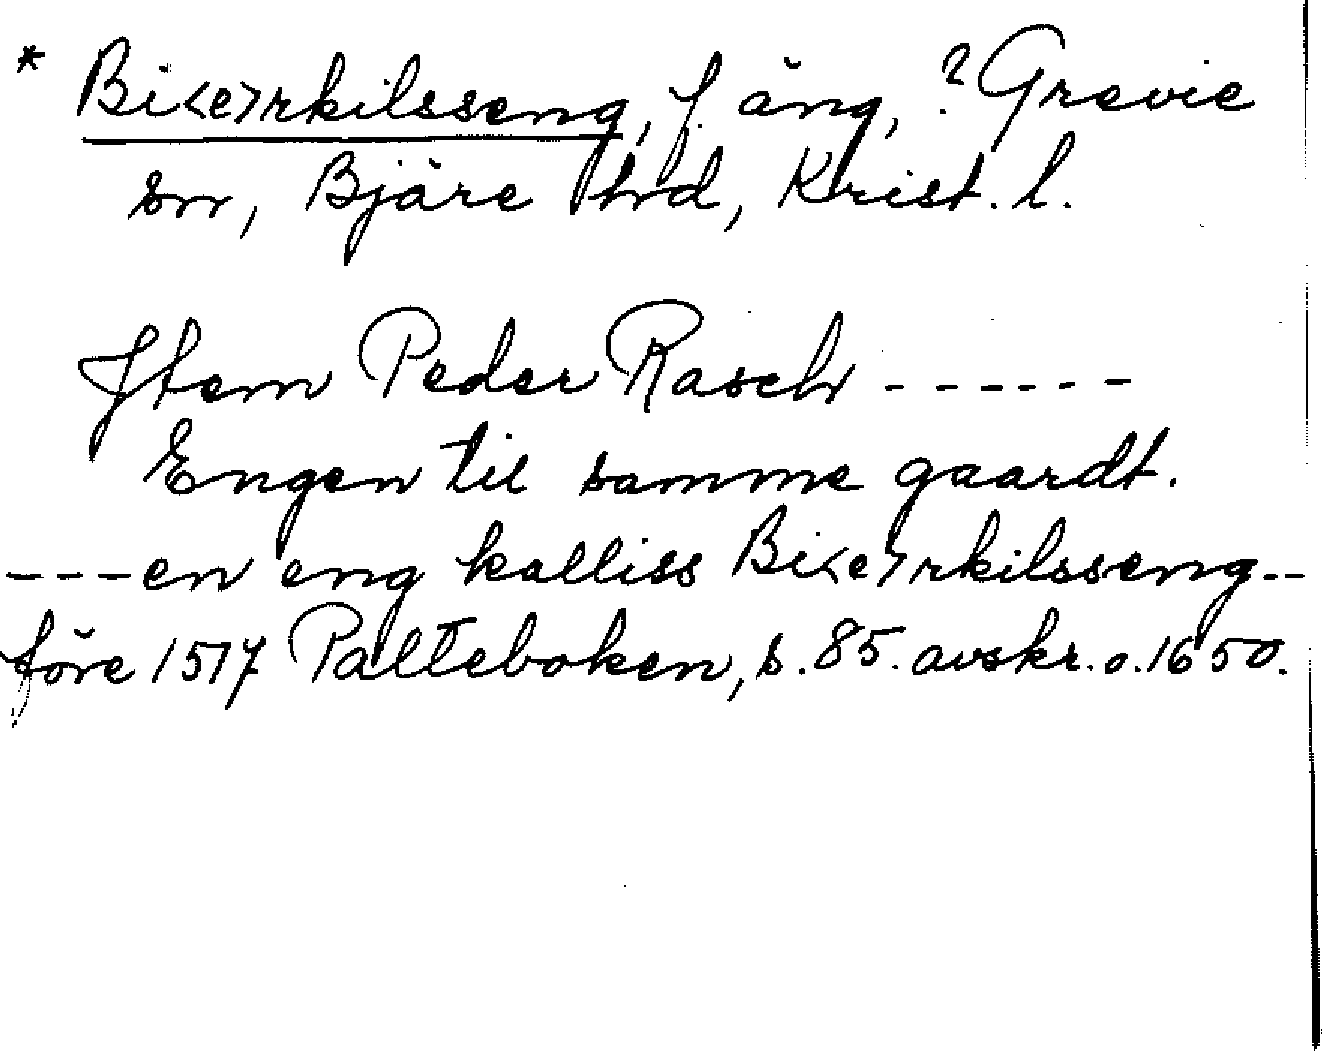 * Bi<e>rkilsseng, f. äng, ? Grevie
sn, Bjäre hrd, Krist. l.
Jtem Peder Rasch ------
Engen til samme gaardt.
---en eng kalliss Bi<e>rkilsseng--
före 1517 Palteboken, s. 85. avskr. o. 1650.